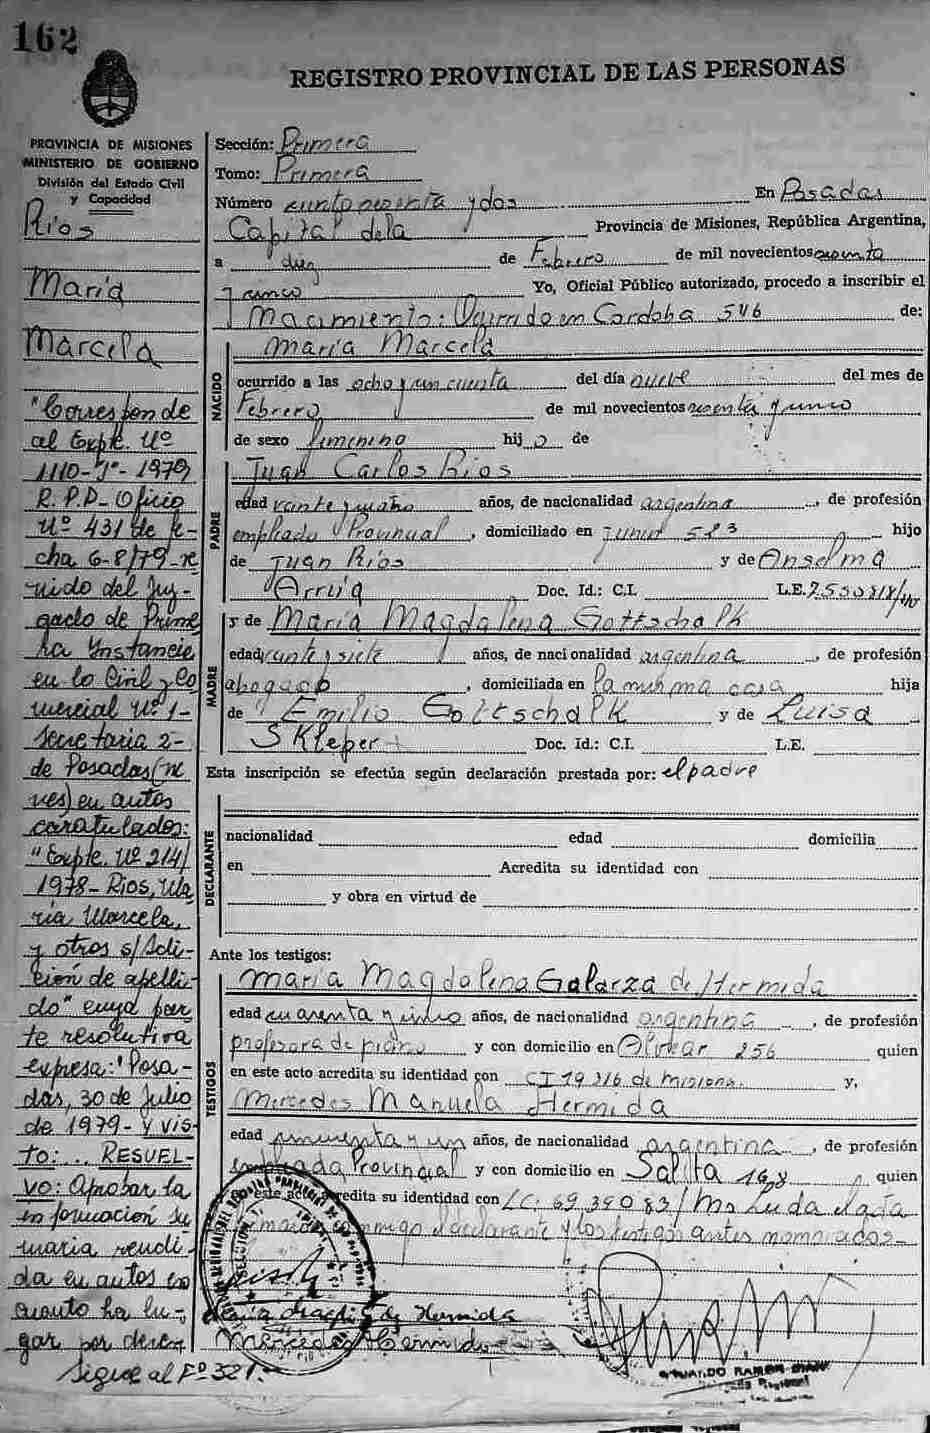 162
REGISTRO PROVINCIAL DE LAS PERSONAS
PROVINCIA DE MISIONES
MINISTERIO DE GOBIERNO
División del Estado Civil
y Capacidad
Ríos
María
Marcela
"Corresponde
al Expte. Nº
1110-"J"-1979
R.P.P- Oficio
Nº 431 de fe-
cha 6-8/79-re
nido del Juz-
gado de Prime
ra Instancia
en lo Civil y Co
mercial Nº 1-
secretaria 2-
de Posadas (Mi
nes) en autos
caratulados:
"Expte. Nº 214/
1978- Rios, Ma
ría Marcela,
y otros s/Adi-
ción de apelli-
do" cuya par
te resolutiva
expresa: "Posa-
das, 30 de Julio
de 1979- y vis-
to:... RESUEL-
VO: Aprobar la
información su
maria rendi
da en autos en
cuanto ha lu-
gar por derec-
Sigue al Fº 321.-
Sección: Primera
Tomo: Primera
Número ciento sesenta y dos En Posadas
Capital de la Provincia de Misiones, República Argentina,
a diez de Febrero de mil novecientos sesenta
y cinco Yo, Oficial Público autorizado, procedo a inscribir el
Nacimiento: Ocurrido en Cordoba 546 de:
NACIDO
María Marcela
ocurrido a las ocho y cincuenta del día nueve del mes de
Febrero de mil novecientos sesenta y cinco
de sexo femenino hijo de
PADRE
Juan Carlos Rios
edad veinte y cuatro años, de nacionalidad argentina, de profesión
empleado Provincial, domiciliado en Junin 583 hijo
de Juan Ríos y de Anselma
Arrúa Doc. Id.: C.I. L.E. 7550818/40
MADRE
y de María Magdalena Gottschalk
edad veinte y siete años, de nacionalidad argentina, de profesión
abogado, domiciliada en la misma casa hija
de Emilio Gottschalk y de Luisa
Skleper Doc. Id.: C.I. L.E.
Esta inscripción se efectúa según declaración prestada por: el padre
DECLARANTE
nacionalidad edad domicilia
en Acredita su identidad con
y obra en virtud de
Ante los testigos:
TESTIGOS
María Magdalena Galarza de Hermida
edad cuarenta y cinco años, de nacionalidad argentina, de profesión
profesora de piano y con domicilio en Alvear 256 quien
en este acto acredita su identidad con CI 19216 de misiones. y,
Mercedes Manuela Hermida
edad cincuenta y un años, de nacionalidad argentina, de profesión
empleada Provincial y con domicilio en Salta quien
en este acto acredita su identidad con L.C. 6939083/ Ms Leida el acta
firman conmigo el declarante y los testigos antes nombrados-
María Magd. de Hermida
Mercedes Hermida